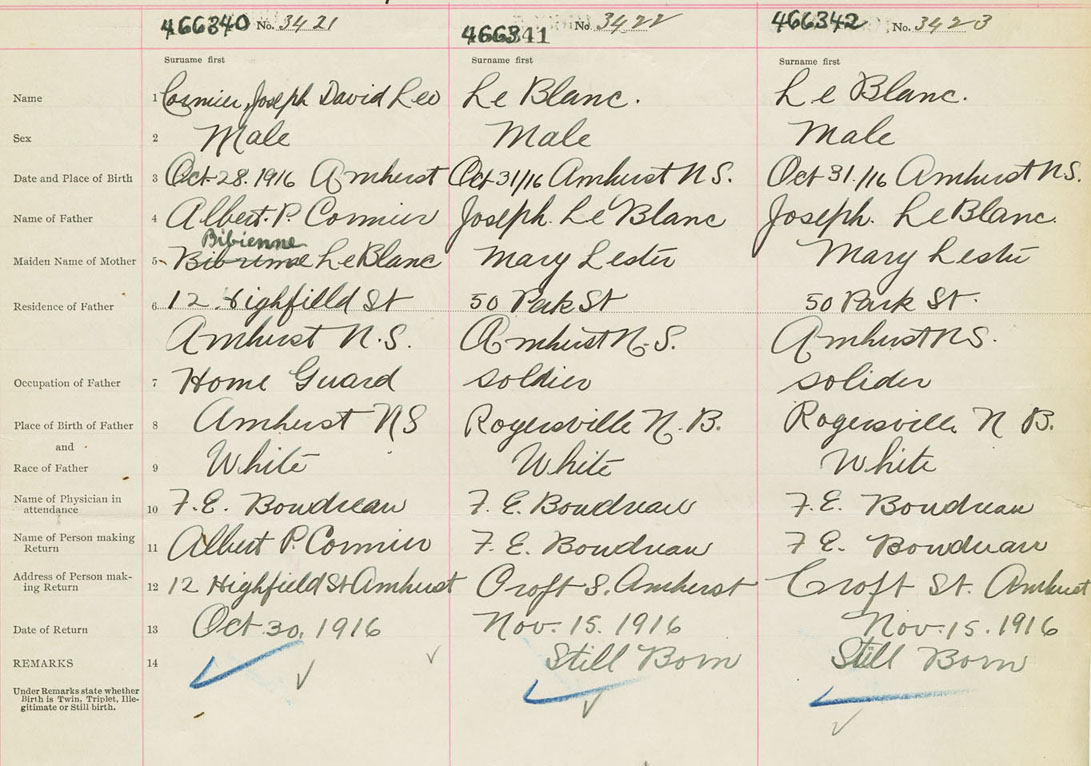 466340 No. 3421 466341 No. 3422 466342 No. 3423
Surname first Surname first Surname first
Name 1 Cormier, Joseph David Leo Le Blanc. Le Blanc.
Sex 2 Male Male Male
Date and Place of Birth 3 Oct. 28. 1916 Amherst Oct 31/16 Amherst N.S. Oct 31./16 Amherst N.S.
Name of Father 4 Albert. P. Cormier Joseph. Le Blanc Joseph. Le Blanc.
Bibienne
Maiden Name of Mother 5 LeBlanc Mary Lester Mary Lester
Residence of Father 6 12 Highfield St 50 Park St 50 Park St.
Amherst N.S. Amherst N.S. Amherst N.S.
Occupation of Father 7 Home Guard soldier solider
Place of Birth of Father 8 Amherst NS Rogersville N.B. Rogersville N B.
and
Race of Father 9 White White White
Name of Physician in
attendance 10 F. E. Boudreau F. E. Boudreau F. E. Boudreau
Name of Person making
Return 11 Albert P. Cormier F. E. Boudreau F E. Boudreau
Address of Person mak-
ing Return 12 12 Highfield St Amherst Croft S. Amherst Croft St. Amherst
Date of Return 13 Oct. 30, 1916 Nov. 15. 1916 Nov. 15. 1916
REMARKS 14 Still Born Still Born
Under Remarks state whether
Birth is Twin, Triplet, Ille-
gitimate or Still birth.